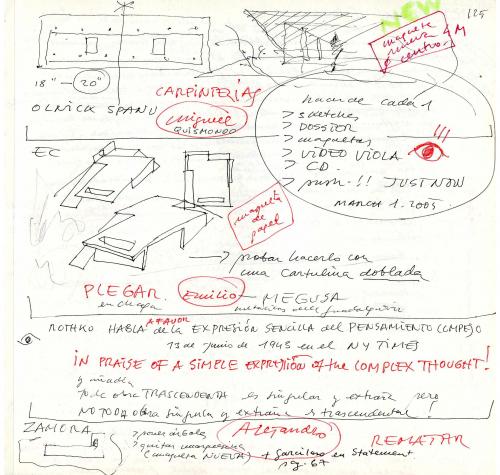 NEW
125
maqueta
nueva 4M
centro.
18" — 20"
OLNICK SPANU
CARPINTERÍAS
Miguel
QUISMONDO
hacer de cada 1
> sketches
> DOSSIER
> maquetas
> VIDEO VIOLA
> CD.
> push-!! JUST NOW
MARCH 1. 2005.
!!!
EC
maqueta
de
papel
→ probar hacerlo con
una cartulina doblada
PLEGAR.
en chapa
Emilio — MEGUSA
ROTHKO HABLA A FAVOR de la EXPRESIÓN SENCILLA del PENSAMIENTO COMPLEJO
13 de junio de 1943 en el NY TIMES
IN PRAISE OF A SIMPLE EXPRESSION of the COMPLEX THOUGHT!
y añadía
toda obra TRASCENDENTAL es singular y extraña pero
NO TODA obra singular y extraña es trascendental!
ZAMORA
> poner árboles
> quitar
(maqueta NUEVA)
Alejandro
+ Garcilaso en Statement
pg. 67
REMATAR